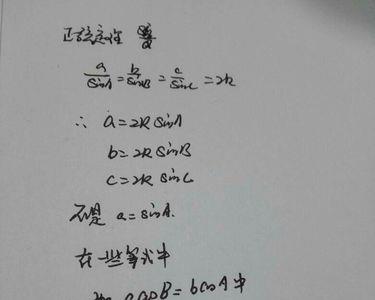 正弦定理
a/sinA = b/sinB = c/sinC = 2R
∴ a=2R sinA
b=2R sinB
c=2R sinC
不是 a=sinA.
在一些等式中
如 acosB=bcosA中